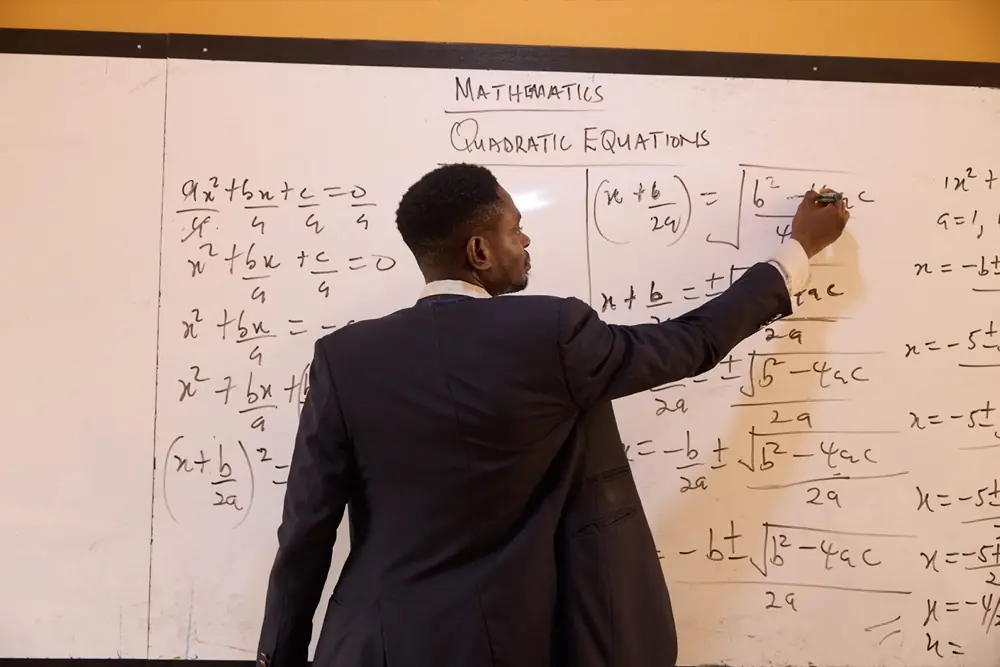 MATHEMATICS
QUADRATIC EQUATIONS
ax²/a + bx/a + c/a = 0/a
x² + bx/a + c/a = 0
x² + bx/a = -
x² + bx/a +
(x + b/2a)² =
(x + b/2a) = √b² - ac/4
x + b/ = ± √ 4ac/2a
/2a = ± √b² - 4ac/2a
x = -b/2a ± √b² - 4ac/2a
-b ± √b² - 4ac/2a
1x² +
a=1,
x = -b±
x = -5±
x = -5±
x = -5±
x = -5±/2
x = -4/
x =